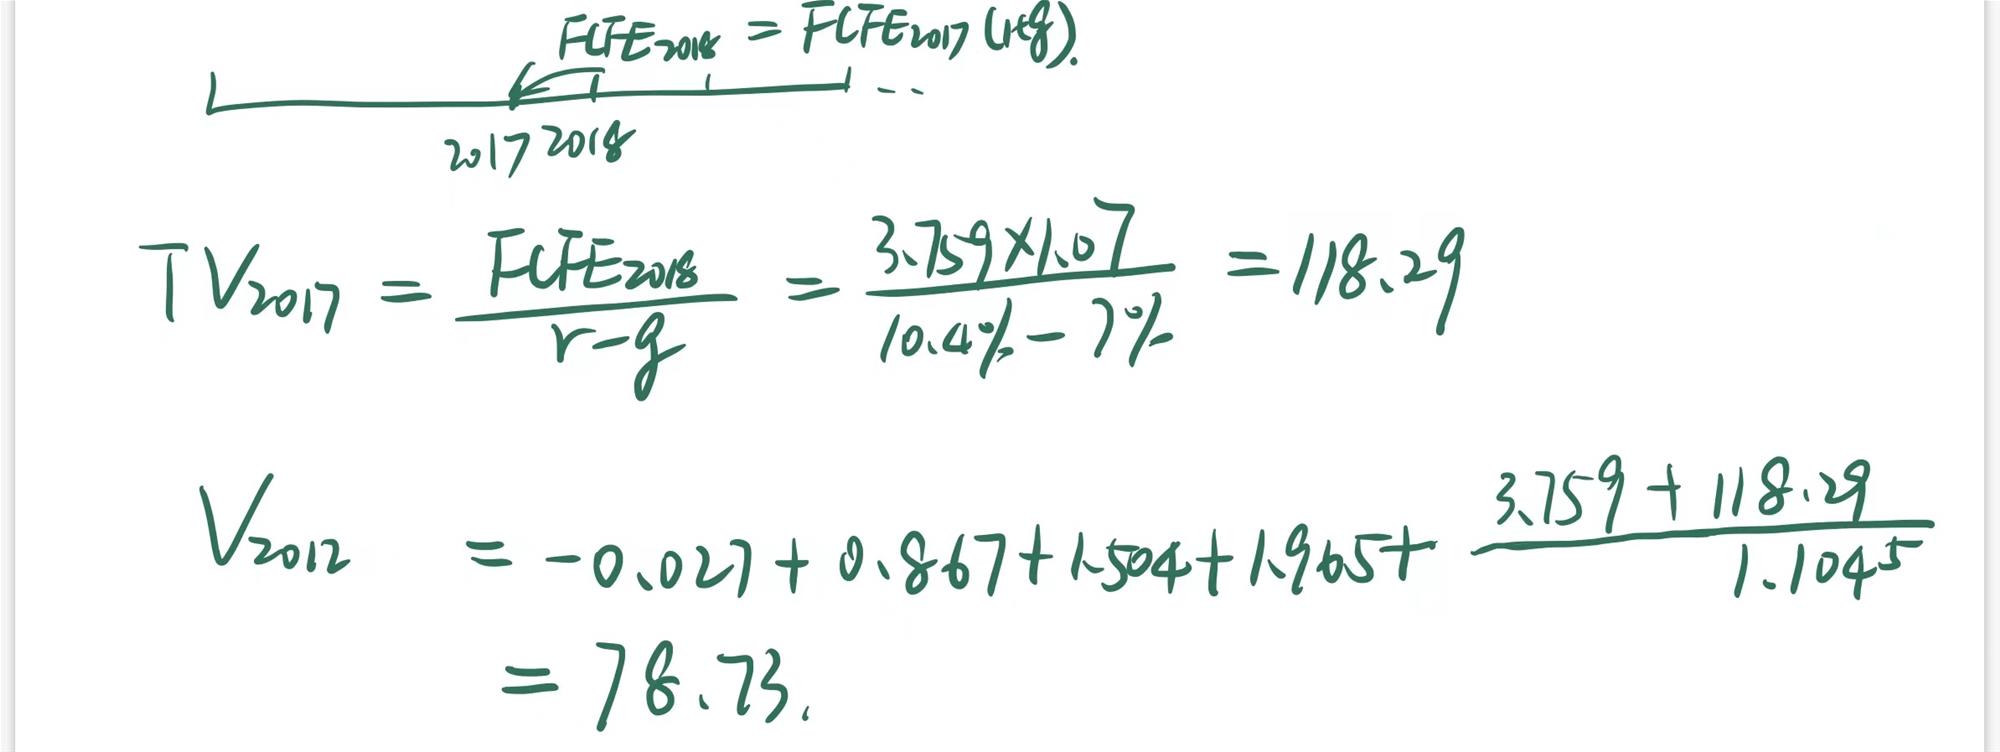 FCFE2018 = FCFE2017 (1+g).
2017 2018 ...
TV2017 = FCFE2018 / r-g = 3.759×1.07 / 10.4% - 7% = 118.29
V2012 = -0.027 + 0.867 + 1.504 + 1.965 + 3.759 + 118.29 / 1.104^5
= 78.73.